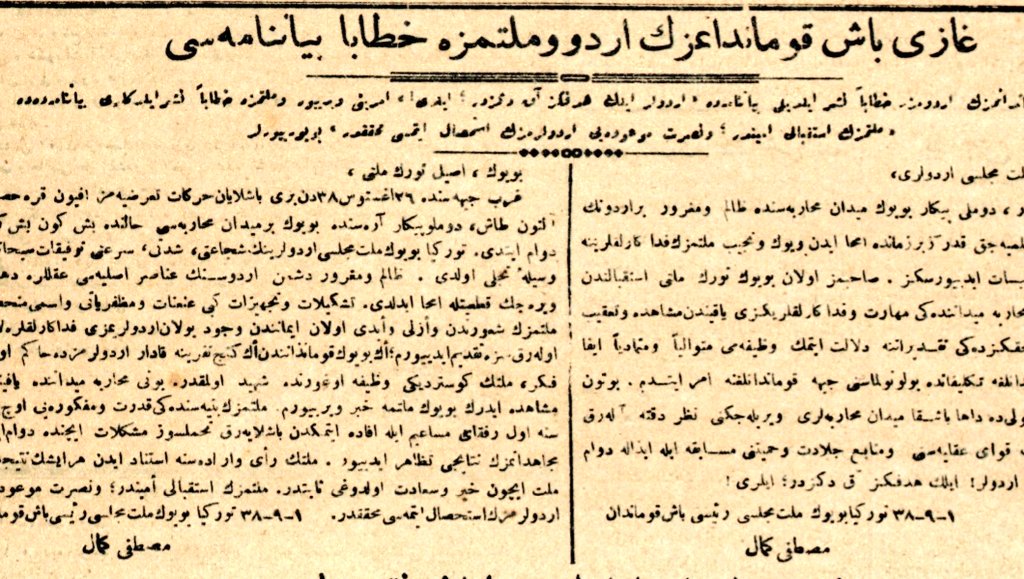 غازی باش قومانداننمزك اردو وملتمزه خطابا بیاننامه سی
انمزك اردومزه خطاباً نشر ایلدیلی بیاننامه ده « اردولر ایلك هدفكز آق دكزدر ؛ ایلری! » امرینی ویریور وملتمزه خطاباً نشر ایلدكلری بیاننامه ده ده
« ملتمزك استقبالی امیندر ؛ ونصرت موعوده یی اردولرمزك استحصال ایتمسی محققدر » بویوریورلر
ملت مجلسی اردولری،
دوملی پیكار بویوك میدان محاربه سنده ظالم ومغرور براردونك
قدر آز برزمانده امحا ایدن بویوك ونجیب ملتمزك فدا كارلقلرینه
ایدیورسكز . صاحبمز اولان بویوك تورك ملتی استقبالندن
محاربه میداننده كی مهارت وفدا كارلقلریكزی یاقیندن مشاهده وتعقیب
حقكزده كی تقدیراتنه دلالت ایتمك وظیفه سی متوالیاً ومتمادیاً ایفا
تكلیفاتده بولونولماسنی جبهه قوماندانلغنه امر ایتدم . بوتون
داها باشقا میدان محاربه لری ویریله جكنی نظر دقته آله رق
قوای عقلیه سی ومنابع جلادت وحمیتنی مسابقه ایله ابذاله دوام
اردولر! ایلك هدفكز آق دكزدر؛ ایلری!
۱-۹-۳۸ توركیا بویوك ملت مجلسی رئیسی باش قوماندان
مصطفی كمال
بویوك ، اصیل تورك ملتی ،
غرب جبهه سنده ۲٦ اغستوس ۳۸ دن بری باشلایان حركات تعرضیه مز افیون قره حصار
آلتون طاش، دوملو پیكار آره سنده بویوك برمیدان محاربه سی حالنده بش كون بش
دوام ایتدی. توركیا بویوك ملت مجلسی اردولرینك شجاعتی، شدتی، سرعتی توفیقات سبحانیه
وسیلهٔ تجلی اولدی . ظالم ومغرور دشمن اردوسنك عناصر اصلیه سی عقللره
ویره جك قطعیتله امحا ایدلدی. تشكیلات وتجهیزات كبی عنعنات ومظفریاتی واسمی
ملتمزك شعورندن وأزلی وأبدی اولان ایمانندن وجود بولان اردولریمزی فداكارلقلره
اوله رق سزه تقدیم ایدییورم؛ أك بویوك قومانداننندن أك كنج نفرینه قادار اردولرمزده حاكم
فكر، ملتك كوستردیكی وظیفه اوغورنده شهید اولمقدر. بونی محاربه میداننده
مشاهده ایدرك بویوك ملتمه خبر ویریورم. ملتمزك بنیه سنده كی قدرت ومفكوره یی اوچ
سنه اول رفقای مساعیم ایله افاده ایتمكدن باشلایه رق تحملسوز مشكلات ایچنده دوام
مجاهداتمزك نتایجی تظاهر ایدییور . ملتك رأی واراده سنه استناد ایدن هرایشك
ملت ایچون خیر وسعادت اولدوغی ثابتدر. ملتمزك استقبالی أمیندر؛ ونصرت
اردولرمزك استحصال ایتمه سی محققدر. ۱-۹-۳۸ توركیا بویوك ملت مجلسی رئیسی باش
مصطفی كمال